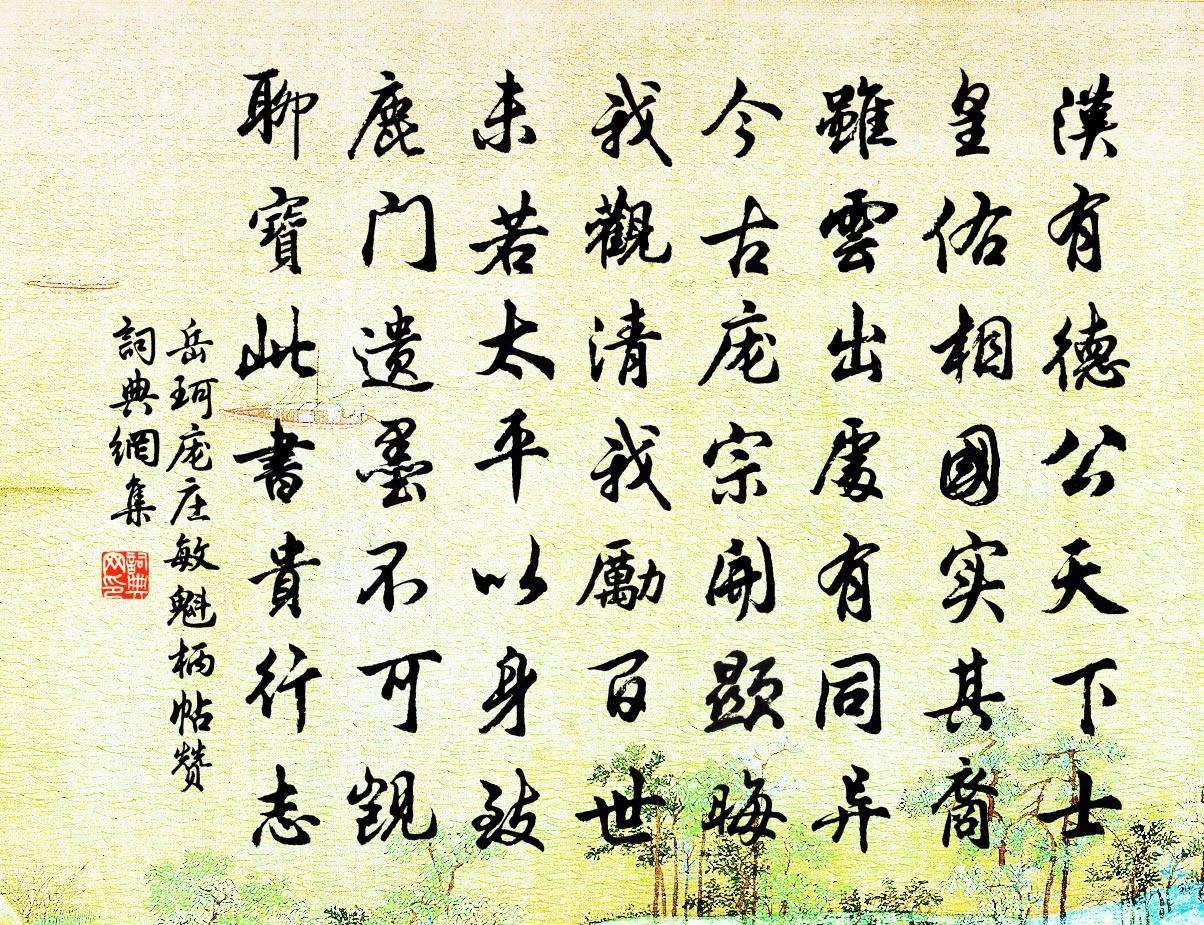 漢有德公天下士
皇佑相國实其裔
雖雲出處有同异
今古庞宗開顯晦
我觀清我勵百世
未若太平以身致
鹿门遗墨不可觊
聊寶此書貴行志
岳珂庞庄敏魁柄帖赞
詞典網集
詞典网印